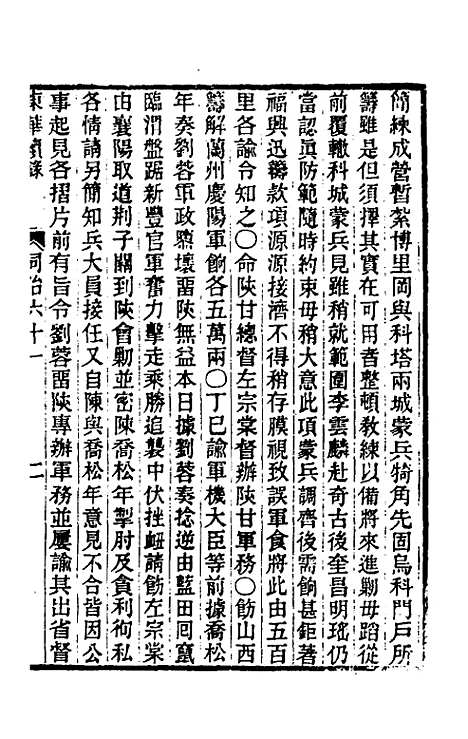 簡練成營暫紮博里岡與科塔兩城蒙兵犄角先固烏科門戶所
籌雖是但須擇其實在可用者整頓教練以備將來進勦毋蹈從
前覆轍科城蒙兵見雖稍就範圍李雲麟赴奇古後奎昌明瑤仍
當認眞防範隨時約束毋稍大意此項蒙兵調齊後需餉甚鉅著
福興迅籌款項源源接濟不得稍存膜視致誤軍食將此由五百
里各諭令知之〇命陝甘總督左宗棠督辦陝甘軍務〇飭山西
籌解蘭州慶陽軍餉各五萬兩〇丁巳諭軍機大臣等前據喬松
年奏劉蓉軍政隳壞畱陝無益本日據劉蓉奏捻逆由藍田囘竄
臨渭盤踞新豐官軍奮力擊走乘勝追襲中伏挫衄請飭左宗棠
由襄陽取道荆子關到陝會勦並密陳喬松年掣肘及貪利徇私
各情請另簡知兵大員接任又自陳與喬松年意見不合皆因公
事起見各摺片前有旨令劉蓉畱陝專辦軍務並屢諭其出省督
東華續錄
同治六十一
二